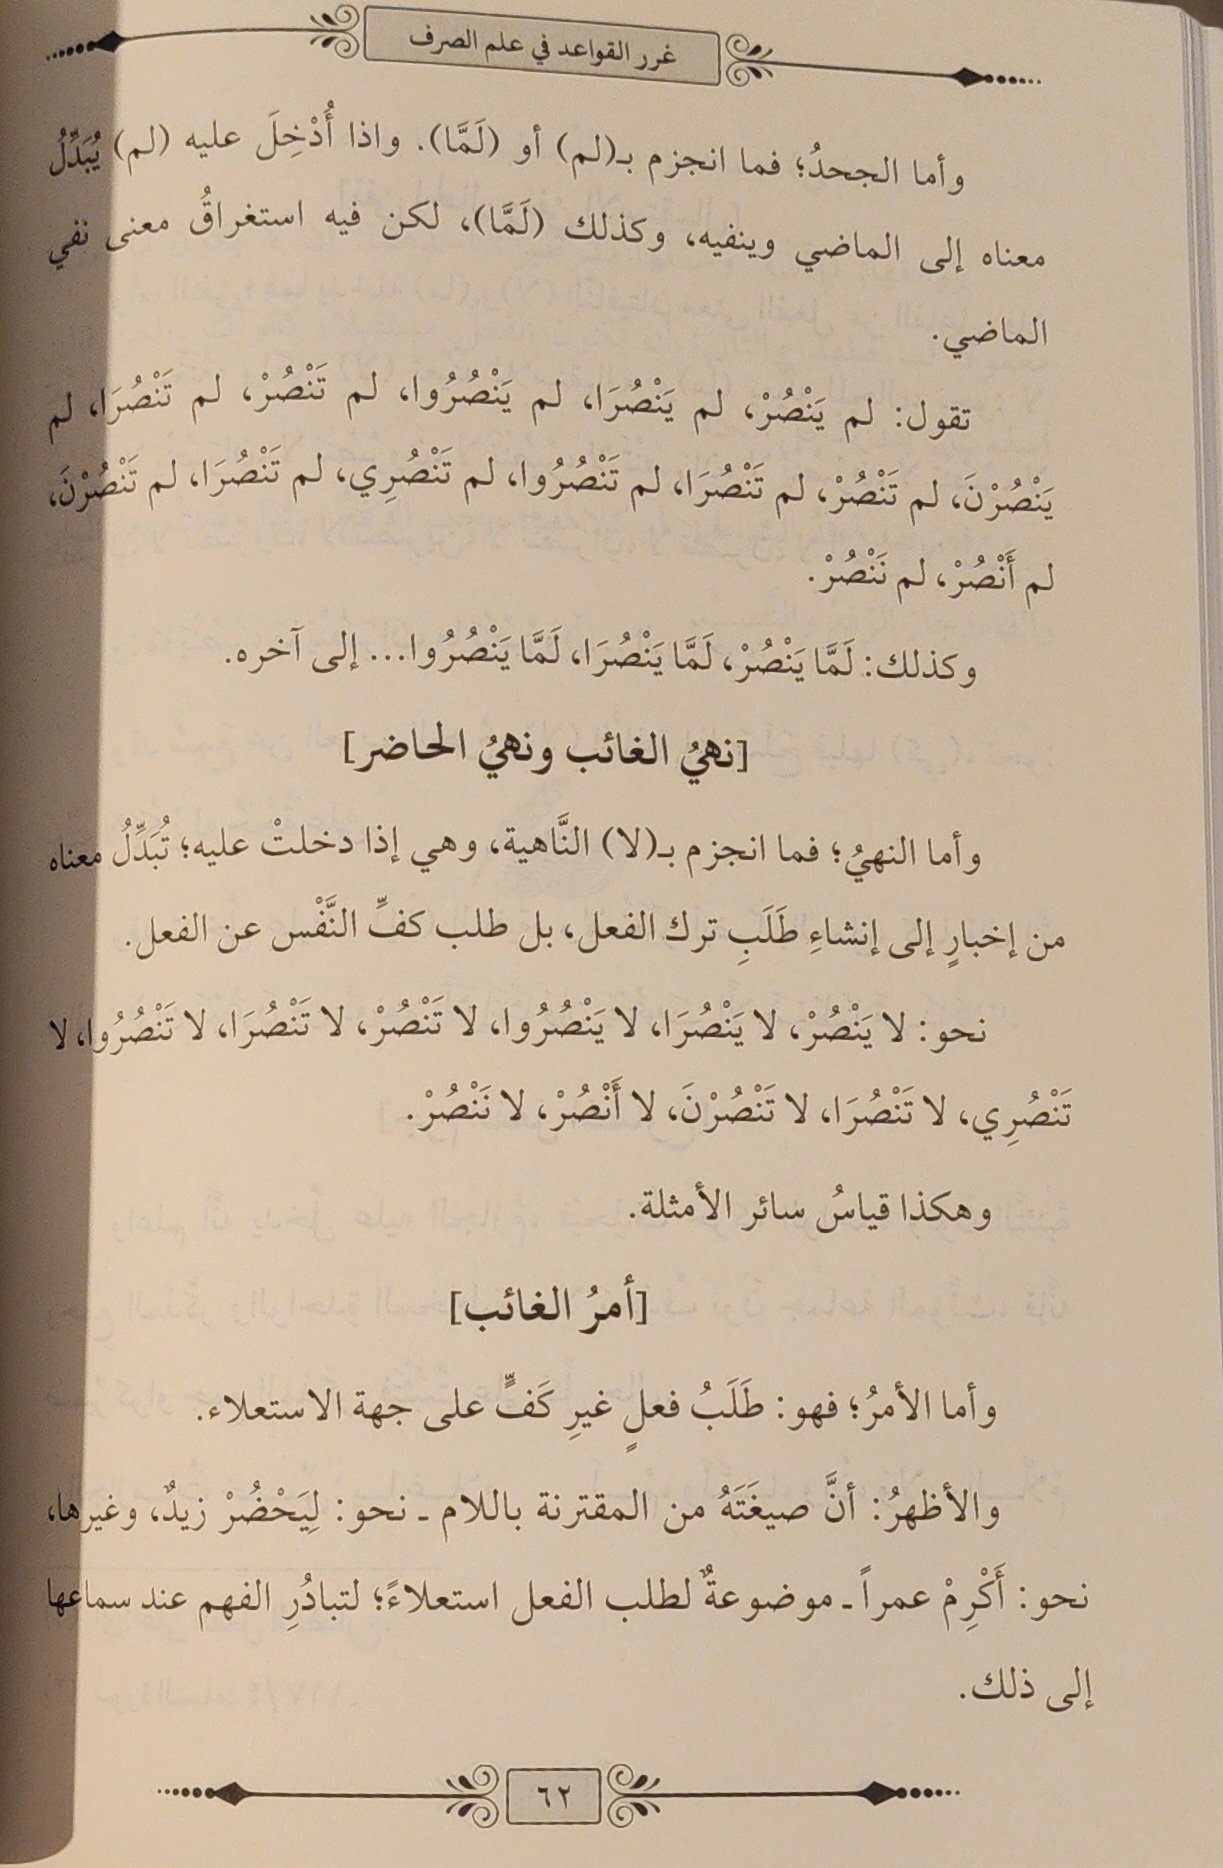 غرر القواعد في علم الصرف
وأما الجحدُ؛ فما انجزم بـ(لم) أو (لَمَّا). واذا أُدْخِلَ عليه (لم) يُبَدِّلُ
معناه إلى الماضي وينفيه، وكذلك (لَمَّا)، لكن فيه استغراقُ معنى نفي
الماضي.
تقول: لم يَنْصُرْ، لم يَنْصُرَا، لم يَنْصُرُوا، لم تَنْصُرْ، لم تَنْصُرَا، لم
يَنْصُرْنَ، لم تَنْصُرْ، لم تَنْصُرَا، لم تَنْصُرُوا، لم تَنْصُرِي، لم تَنْصُرَا، لم تَنْصُرْنَ،
لم أَنْصُرْ، لم نَنْصُرْ.
وكذلك: لَمَّا يَنْصُرْ، لَمَّا يَنْصُرَا، لَمَّا يَنْصُرُوا... إلى آخره.
[نهيُ الغائب ونهيُ الحاضر]
وأما النهيُ؛ فما انجزم بـ(لا) النَّاهية، وهي إذا دخلتْ عليه؛ تُبَدِّلُ معناه
من إخبارٍ إلى إنشاءِ طَلَبِ ترك الفعل، بل طلب كفِّ النَّفْس عن الفعل.
نحو: لا يَنْصُرْ، لا يَنْصُرَا، لا يَنْصُرُوا، لا تَنْصُرْ، لا تَنْصُرَا، لا تَنْصُرُوا، لا
تَنْصُرِي، لا تَنْصُرَا، لا تَنْصُرْنَ، لا أَنْصُرْ، لا نَنْصُرْ.
وهكذا قياسُ سائر الأمثلة.
[أمرُ الغائب]
وأما الأمرُ؛ فهو: طَلَبُ فعلٍ غيرِ كَفٍّ على جهة الاستعلاء.
والأظهرُ: أنَّ صيغَتَهُ من المقترنة باللام ـ نحو: لِيَحْضُرْ زيدٌ، وغيرها،
نحو: أَكْرِمْ عمراً ـ موضوعةٌ لطلب الفعل استعلاءً؛ لتبادُرِ الفهم عند سماعها
إلى ذلك.
٦٢